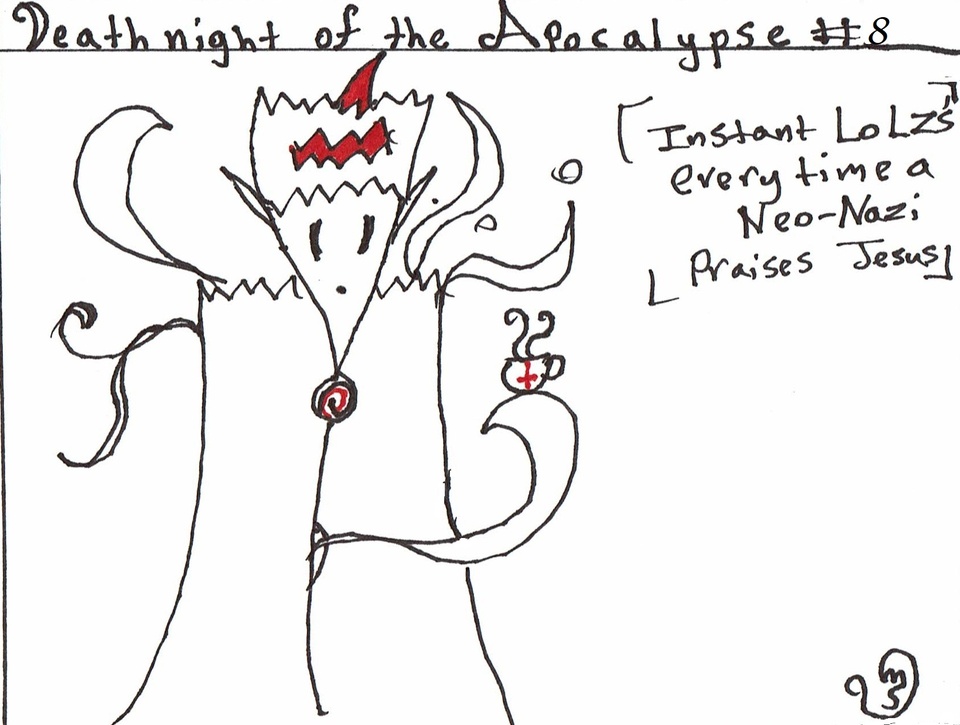 Deathnight of the Apocalypse #8
[Instant LoLZs
every time a
Neo-Nazi
Praises Jesus]
MS